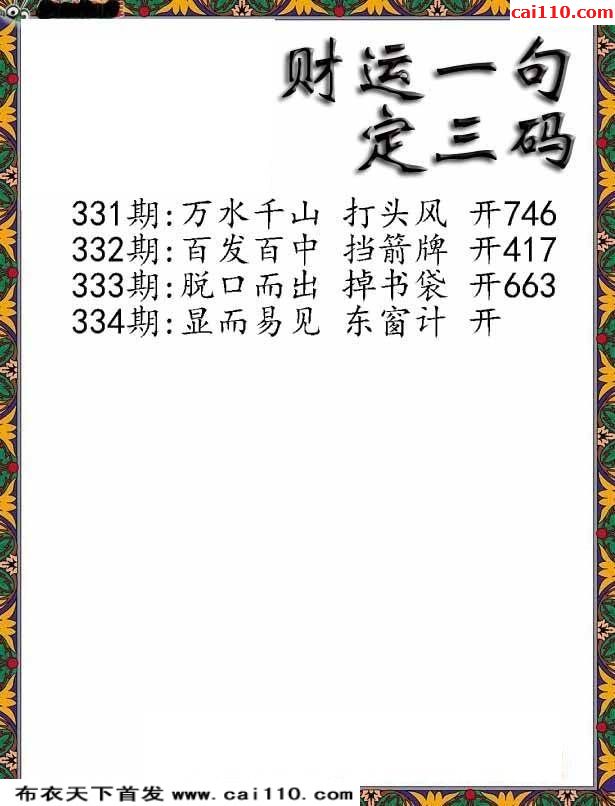 cai110.com
财运一句
定三码
331期:万水千山 打头风 开746
332期:百发百中 挡箭牌 开417
333期:脱口而出 掉书袋 开663
334期:显而易见 东窗计 开
布衣天下首发 www.cai110.com